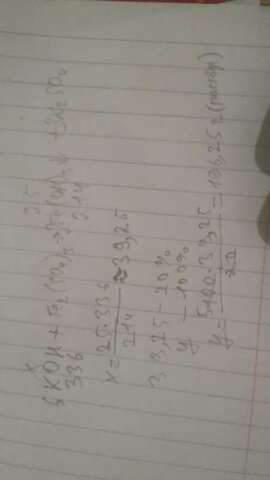 x 25
6KOH + Fe₂(SO₄)₃ → 2Fe(OH)₃↓ + 3K₂SO₄
336 214
x = 25·336 / 214 ≈ 39,25
39,25 — 20%
y — 100%
y = 100·39,25 / 20 = 196,25 г (раствор)